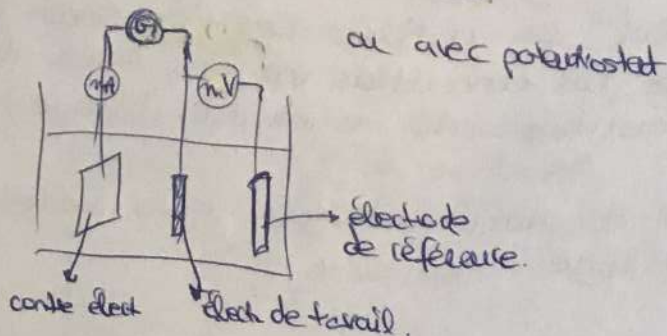 G
ou avec potentiostat
mA
mV
électrode
de référence.
contre élect
élect de travail.